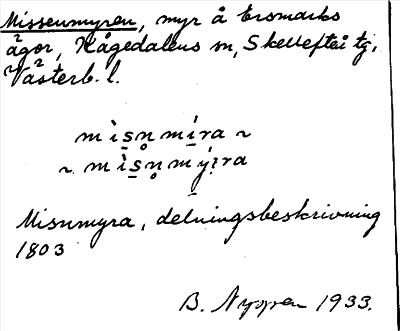 Missenmyren, myr å Ersmarks
ägor, Kågedalens sn, Skellefteå tg,
Västerb. l.
mìs̠n̥mí̠ra ~
~ mìs̠n̥mý̠ra
Misnmyra, delningsbeskrivning
1803
B. Nyman 1933.